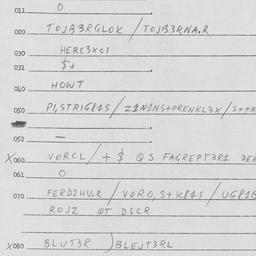 011 O
020 TOJB3RGLOK / TOJB3RNA.R
030 HERC3XCI
031 $+
040 HOWT
050 PI,STRIG81S / Z1N1NS+PRENKL3X / S+PR
052 —
X060 VORCL / + $ QS FAGREPT3R1 DER
061 O
070 FERDIHU.R / VORO,S+K81S / UG81G
ROJZ QT DSCR
X080 BLUT3R ) BLEJT3RL